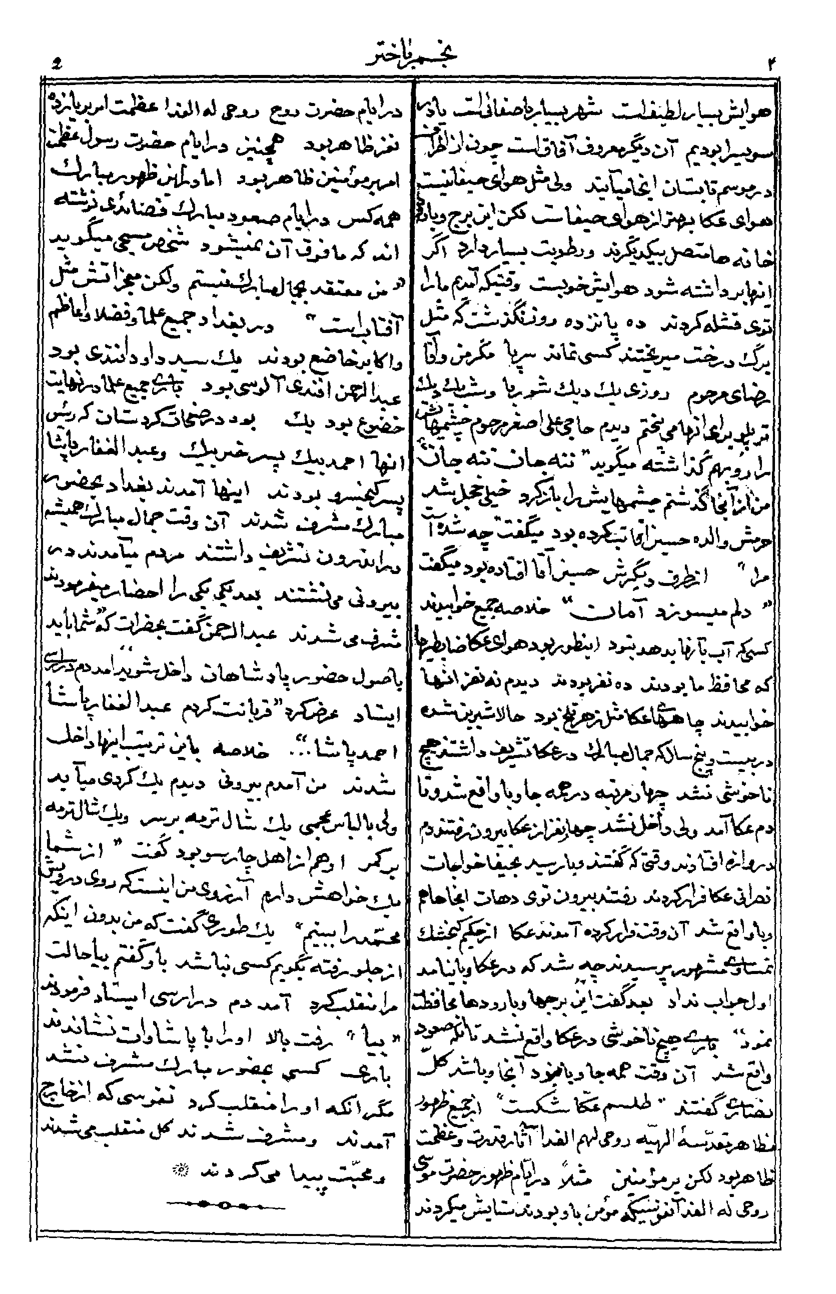 ۲ نجم باختر 2
هوایش بسیار لطیف است شهر بسیار باصفائی است
سویسرا بودیم آن دیگر معروف آفاق است چون از
در موسم تابستان اینجا میآیند ولی مثل هوای حیفا نیست
هوای عکا بهتر از هوای حیفاست لکن این برج و
خانه ها متصل بیکدیگرند و رطوبت بسیار دارد اگر
اینها برداشته شود هوایش خوبست وقتیکه آمدیم ما را
توی قشله کردند ده پانزده روز نگذشت که مثل
برگ درخت میریختند کسی نماند سرپا مگر من و آقا
رضای مرحوم روزی یک دیگ شوربا و شب یک دیگ
تر پلو برای آنها می پختم دیدم حاجی علی اصغر مرحوم چشمهایش
را رویهم گذاشته میگوید "ننه جان ننه جان"
من از آنجا گذشتم چشمهایش را باز کرد خیلی خجل شد
والده حسین آقا تب کرده بود میگفت "چه شده
مرا" از طرف دیگرش حسین آقا افتاده بود میگفت
"دلم میسوزد آمان" خلاصه جمیع خوابیدند
کسی که آب بآنها بدهد نبود اینطور بود هوای عکا ضابطیها
که محافظ ما بودند ده نفر بودند دیدم نه نفر آنها
خوابیدند چاههای عکا مثل زهر تلخ بود حالا شیرین شده
در بیست و پنج سال که جمال مبارک در عکا تشریف داشتند هیچ
ناخوشی نشد چهار مرتبه در همه جا وبا واقع شد و تا
دم عکا آمد ولی داخل نشد چهار نفر از عکا بیرون رفتند دم
دروازه افتادند وقتی که گفتند وبا رسید بحیفا خواجات
نصرانی عکا فرار کردند رفتند بیرون توی دهات آنجاها هم
وبا واقع شد آن وقت فرار کرده آمدند عکا از حکیم
نمساوی مشهور پرسیدند چه شد که در عکا وبا نیامد
اول جواب نداد بعد گفت این برجها و بارودها محافظه
نمود" باری هیچ ناخوشی در عکا واقع نشد تا آنکه صعود
واقع شد آن وقت همه جا وبا نمود آنجا وبا شد کل
نصاری گفتند "طلسم عکا شکست" از جمیع ظهور
مظاهر مقدسهٔ الهیه روحی لهم الفدا آثار قدرت و عظمت
ظاهر بود لکن بر مؤمنین مثلاً در ایام ظهور حضرت موسی
روحی له الفدا نفوسیکه مؤمن باو بودند ستایش میکردند
در ایام حضرت روح روحی له الفدا عظمت امر بر یازده
نفر ظاهر بود همچنین در ایام حضرت رسول عظمت
امر بر مؤمنین ظاهر بود اما در این ظهور مبارک
همه کس در ایام صعود مبارک قصائدی نوشته
اند که مافوق آن نمیشود شخص مسیحی میگوید
"من معتقد بجمال مبارک نیستم ولکن معجزاتش مثل
آفتابست" در بغداد جمیع علما و فضلا و اعاظم
و اکابر خاضع بودند یک سید داود افندی بود
عبدالرحمن افندی آلوسی بود باری جمیع علما در نهایت
خضوع بود یک بود در صفحات کردستان که رئیس
آنها احمد بیک پسر بیک و عبدالغفار پاشا
پسر کیخسرو بودند اینها آمدند بغداد بحضور
مبارک مشرف شدند آن وقت جمال مبارک همیشه
در اندرون تشریف داشتند مردم میآمدند در
بیرونی می نشستند بعد یکی یکی را احضار میفرمودند
مشرف می شدند عبدالرحمن گفت بحضرات که "شما باید
باصول حضور پادشاهان داخل شوید" آمد دم در ارسی
ایستاد عرض کرد "قربانت گردم عبدالغفار پاشا
احمد پاشا..." خلاصه باین ترتیب اینها داخل
شدند من آمدم بیرونی دیدم یک کردی میآید
ولی با لباس عجمی یک شال ترمه بر سر و یک شال ترمه
بر کمر او هم از اهل چارسو بود گفت "از شما
یک خواهش دارم آرزوی من اینست که روی درویش
محمد را ببینم" یک طوری گفت که من بدون اینکه
از جلو رفته بگویم کسی نباشد باو گفتم بیا حالت
مرا منقلب کرد آمد دم در ارسی ایستاد فرمودند
"بیا" رفت بالا او را با پاشاوات نشاندند
باری کسی بحضور مبارک مشرف نشد
مگر آنکه او را منقلب کرد نفوسی که از خارج
آمدند و مشرف شدند کل منقلب می شدند
و محبت پیدا می کردند